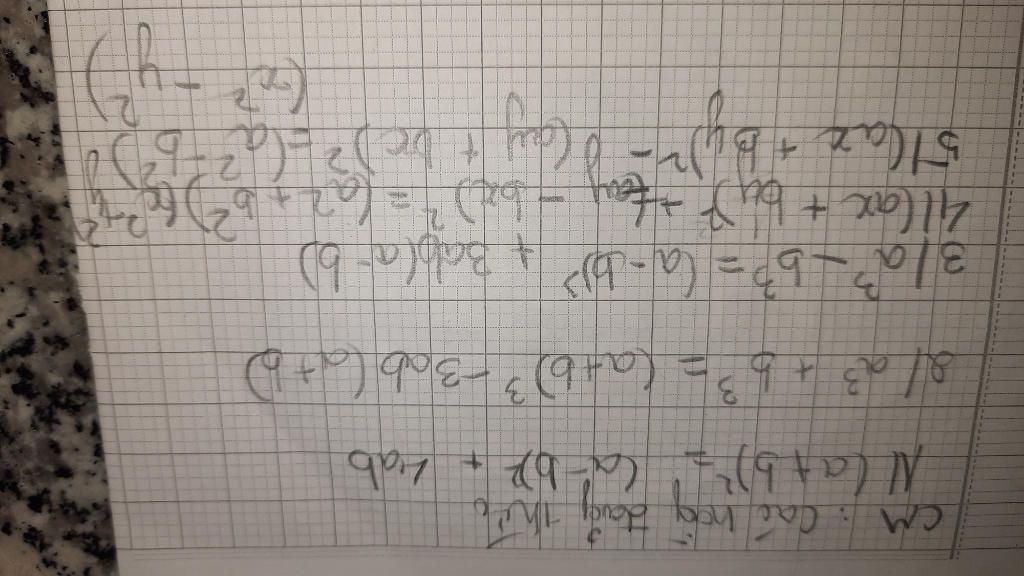 CM : các hằng đẳng thức
1/ (a + b)² = (a - b)² + 4ab
2/ a³ + b³ = (a+b)³ - 3ab (a+b)
3/ a³ - b³ = (a - b)³ + 3ab(a - b)
4/ (ax + by)² + (ay - bx)² = (a² + b²)(x² + y²)
5/ (ax + by)² - (ay + bx)² = (a² - b²)
(x² - y²)